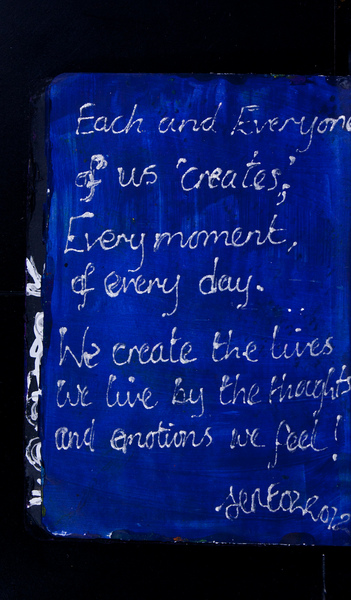 Each and Everyone
of us 'creates';
Every moment,
of every day...
We create the lives
we live by the thoughts
and emotions we feel!